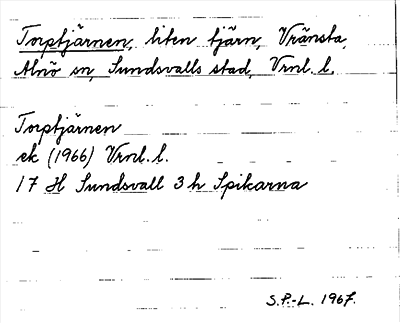 Torptjärnen, liten tjärn, Vränsta,
Alnö sn, Sundsvalls stad, Vrnl. l.
Torptjärnen
ek (1966) Vrnl. l.
17 H Sundsvall 3 h Spikarna
S.P.-L. 1967.